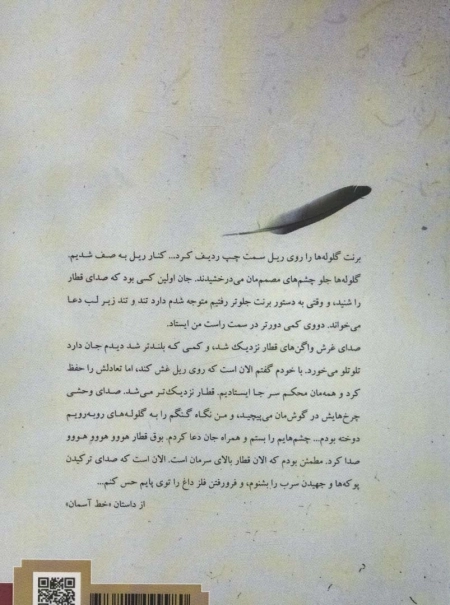 برنت گلوله‌ها را روی ریل سمت چپ ردیف کرد... کنار ریل به صف شدیم.
گلوله‌ها جلو چشم‌های مصمم‌مان می‌درخشیدند. جان اولین کسی بود که صدای قطار
را شنید، و وقتی به دستور برنت جلوتر رفتیم متوجه شدم دارد تند و تند زیر لب دعا
می‌خواند. دووی کمی دورتر در سمت راست من ایستاد.
صدای غرش واگن‌های قطار نزدیک شد، و کمی که بلندتر شد دیدم جان دارد
تلوتلو می‌خورد. با خودم گفتم الان است که روی ریل غش کند، اما تعادلش را حفظ
کرد و همه‌مان محکم سر جا ایستادیم. قطار نزدیک‌تر می‌شد. صدای وحشی
چرخ‌هایش در گوش‌مان می‌پیچید، و من نگاه گنگم را به گلوله‌های روبه‌رویم
دوخته بودم... چشم‌هایم را بستم و همراه جان دعا کردم. بوق قطار هووو هووو هووو
صدا کرد. مطمئن بودم که الان قطار بالای سرمان است. الان است که صدای ترکیدن
پوکه‌ها و جهیدن سرب را بشنوم، و فرورفتن فلز داغ را توی پایم حس کنم...
از داستان «خط آسمان»